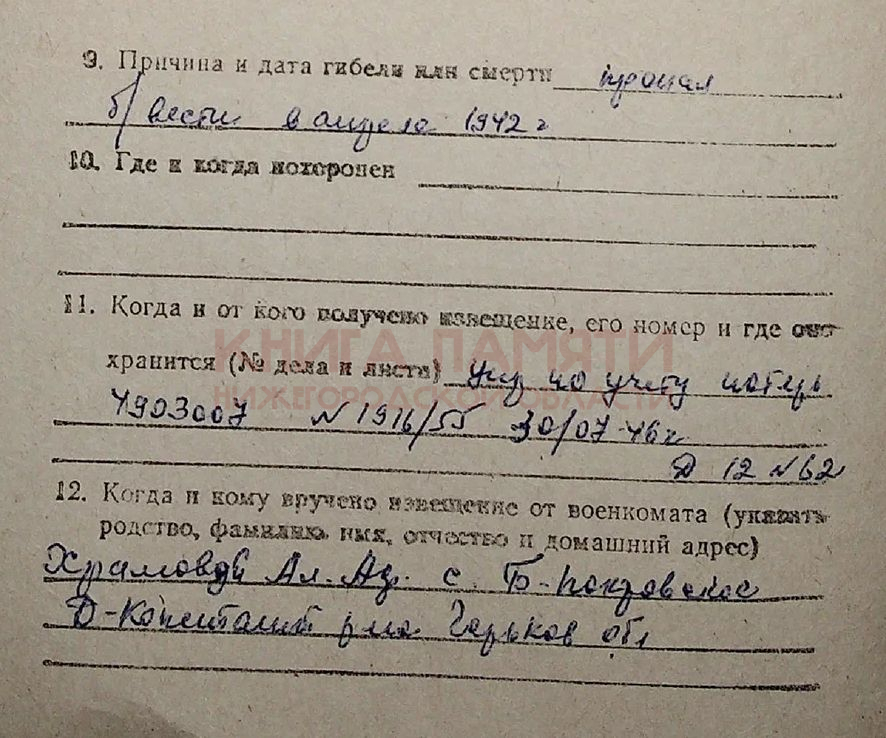 9. Причина и дата гибели или смерти пропал
б/вести в апреле 1942 г
10. Где и когда похоронен
11. Когда и от кого получено извещение, его номер и где оно
КНИГА ПАМЯТИ
хранится (№ дела и листа) упр по учету потерь
НИЖЕГОРОДСКОЙ ОБЛАСТИ
N 1916/55 30/07-46г
Д 12 N 62
12. Когда и кому вручено извещение от военкомата (указать
родство, фамилию, имя, отчество и домашний адрес)
Храмовой Ал. с. Б-покровское
Д-Констант р-на Горьков обл